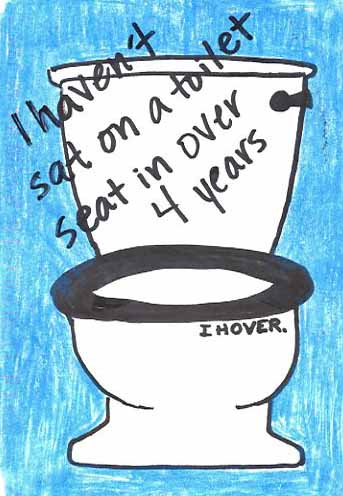 I haven't
sat on a toilet
seat in over
4 years
I HOVER.